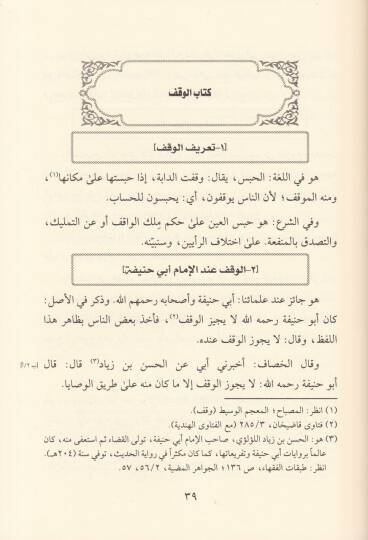 كتاب الوقف
[١-تعريف الوقف]
هو في اللغة: الحبس، يقال: وقفت الدابة، إذا حبستها على مكانها(١)،
ومنه الموقف؛ لأن الناس يوقفون، أي: يحبسون للحساب.
وفي الشرع: هو حبس العين على حكم مِلك الواقف أو عن التمليك،
والتصدق بالمنفعة. على اختلاف الرأيين، وسنبيّنه.
[٢-الوقف عند الإمام أبي حنيفة]
هو جائز عند علمائنا: أبي حنيفة وأصحابه رحمهم الله. وذكر في الأصل:
كان أبو حنيفة رحمه الله لا يجيز الوقف(٢)، فأخذ بعض الناس بظاهر هذا
اللفظ، وقال: لا يجوز الوقف عنده.
وقال الخصاف: أخبرني أبي عن الحسن بن زياد(٣) قال: قال
أبو حنيفة رحمه الله: لا يجوز الوقف إلا ما كان منه على طريق الوصايا.
(١) انظر: المصباح؛ المعجم الوسيط (وقف).
(٢) فتاوى قاضيخان، ٢٨٥/٣ (مع الفتاوى الهندية).
(٣) هو: الحسن بن زياد اللؤلؤي، صاحب الإمام أبي حنيفة، تولى القضاء ثم استعفى منه، كان
عالماً بروايات أبي حنيفة وتفريعاتها، كما كان مكثراً في رواية الحديث، توفي سنة (٢٠٤هـ).
انظر: طبقات الفقهاء، ص ١٣٦؛ الجواهر المضية، ٥٦/٢، ٥٧.
٣٩